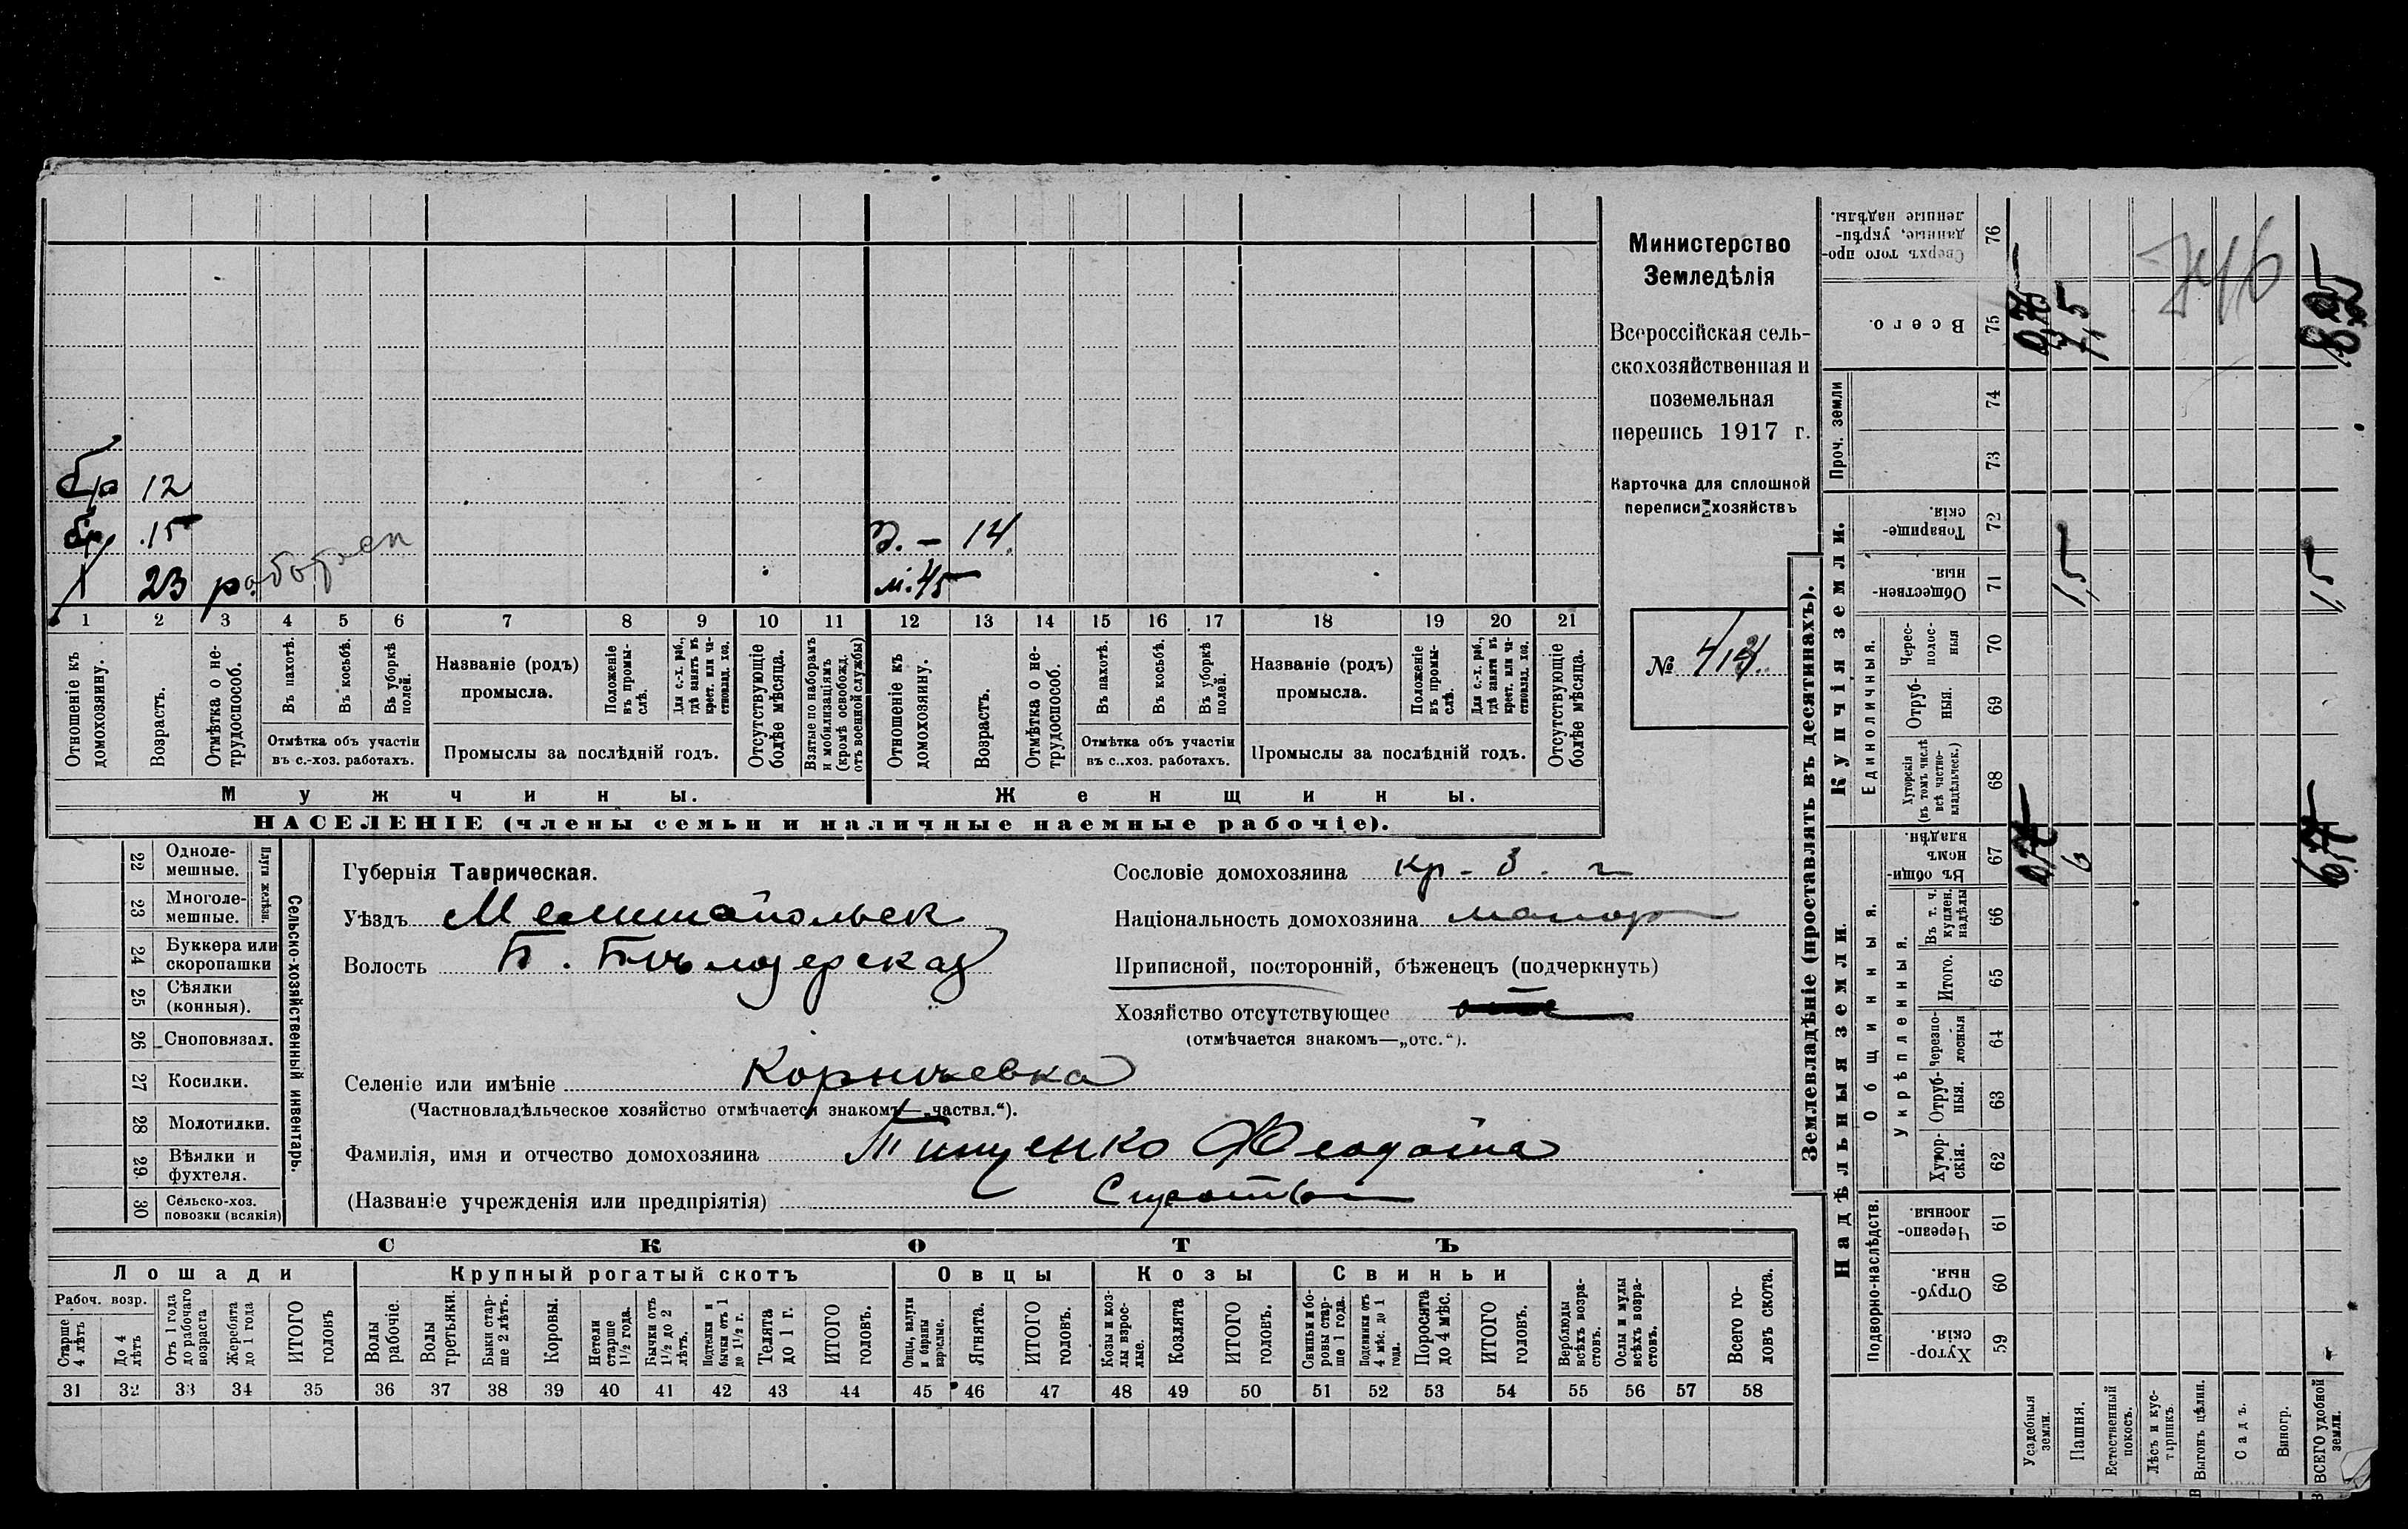 бр 12
бр 15
Э. - 14.
1 23 работн
м. 45
1 2 3 4 5 6 7 8 9 10 11 12 13 14 15 16 17 18 19 20 21
Отношеніе къ домохозяину.
Возрастъ.
Отмѣтка о не-трудоспособ.
Въ пахотѣ.
Въ косьбѣ.
Въ уборкѣ полей.
Отмѣтка объ участіи въ с.-хоз. работахъ.
Названіе (родъ) промысла.
Положеніе въ промы-слѣ.
Для с.-х. раб., гдѣ занятъ въ крест. или ча-стновлад. хоз.
Промыслы за послѣдній годъ.
Отсутствующіе болѣе мѣсяца.
Взятые по наборамъ и мобилизаціямъ (кромѣ освобожд. отъ военной службы)
Отношеніе къ домохозяину.
Возрастъ.
Отмѣтка о не-трудоспособ.
Въ пахотѣ.
Въ косьбѣ.
Въ уборкѣ полей.
Отмѣтка объ участіи въ с.-хоз. работахъ.
Названіе (родъ) промысла.
Положеніе въ промы-слѣ.
Для с.-х. раб., гдѣ занята въ крест. или ча-стновлад. хоз.
Промыслы за послѣдній годъ.
Отсутствующіе болѣе мѣсяца.
Мужчины.
Женщины.
НАСЕЛЕНІЕ (члены семьи и наличные наемные рабочіе).
Министерство
Земледѣлія
Всероссійская сель-
скохозяйственная и
поземельная
перепись 1917 г.
Карточка для сплошной
переписи хозяйствъ
№
22 Одноле-мешные.
23 Многоле-мешные.
Плуги желѣзн.
24 Буккера или скоропашки
25 Сѣялки (конныя).
26 Сноповязал.
27 Косилки.
28 Молотилки.
29. Вѣялки и фухтеля.
30 Сельско-хоз. повозки (всякія)
Сельско-хозяйственный инвентарь.
Губернія Таврическая.
Уѣздъ Мелитопольск
Волость Б. Бѣлозерская
Сословіе домохозяина кр-з. г
Національность домохозяина малор
Приписной, посторонній, бѣженецъ (подчеркнуть)
Хозяйство отсутствующее
(отмѣчается знакомъ—„отс.“).
Селеніе или имѣніе Корнѣевка
(Частновладѣльческое хозяйство отмѣчается знакомъ—„частвл.“).
Фамилія, имя и отчество домохозяина Тищенко Феодота
(Названіе учрежденія или предпріятія) Сироты
СКОТЪ
Лошади
Крупный рогатый скотъ
Овцы
Козы
Свиньи
Рабоч. возр.
Старше 4 лѣтъ
До 4 лѣтъ
Отъ 1 года до рабочаго возраста
Жеребята до 1 года
ИТОГО головъ
Волы рабочіе.
Волы третьяки.
Быки стар-ше 2 лѣтъ.
Коровы.
Нетели старше 1½ года.
Бычки отъ 1½ до 2 лѣтъ.
Подтелки и бычки отъ 1 до 1½ г.
Телята до 1 г.
ИТОГО головъ.
Овцы, валухи и бараны взрослые.
Ягнята.
ИТОГО головъ.
Козы и коз-лы взрос-лые.
Козлята
ИТОГО головъ.
Свиньи и бо-ровы стар-ше 1 года.
Подсвинки отъ 4 мѣс. до 1 года.
Поросята до 4 мѣс.
ИТОГО головъ.
Верблюды всѣхъ возра-стовъ.
Ослы и мулы всѣхъ возра-стовъ.
Всего го-ловъ скота.
31 32 33 34 35 36 37 38 39 40 41 42 43 44 45 46 47 48 49 50 51 52 53 54 55 56 57 58
Землевладѣніе (проставлять въ десятинахъ).
Надѣльныя земли.
Купчія земли.
Проч. земли
Подворно-наслѣдств.
Общинныя.
Укрѣпленныя.
Единоличныя.
59 Хутор-скія.
60 Отруб-ныя.
61 Черезпо-лосныя
62 Хутор-скія.
63 Отруб-ныя.
64 Черезпо-лосныя
65 Итого.
66 Въ т. ч. куплен. надѣлы
67 Въ общи-номъ владѣн.
68 Хуторскія (въ томъ числѣ всѣ частно-владѣльческ.)
69 Отруб-ныя.
70 Черес-полос-ныя
71 Обществен-ныя.
72 Товарище-скія.
73
74
75 Всего.
76 Сверхъ того про-данные, укрѣп-ленные надѣлы.
Усадебныя земли.
Пашня.
Естественный покосъ.
Лѣсъ и кус-тарникъ.
Выгонъ цѣлин.
Садъ.
Виногр.
ВСЕГО удобной земли.
6
1,5
7,5
1,5
746